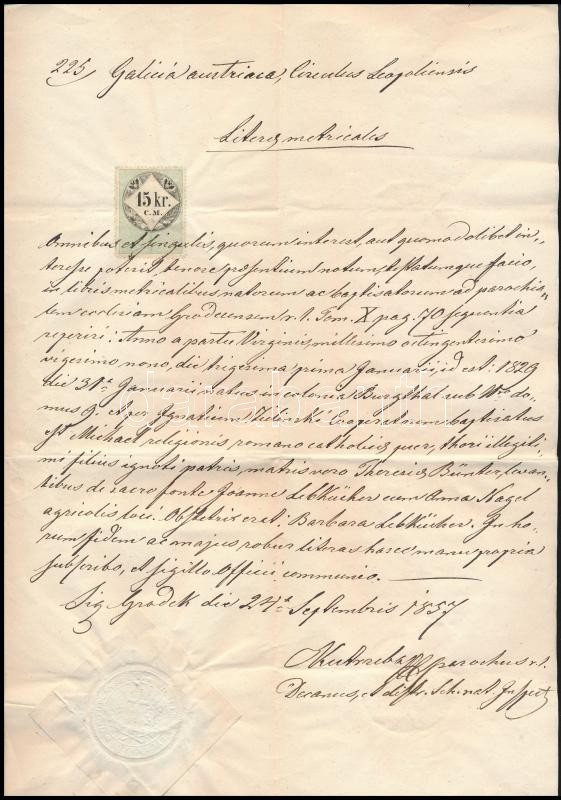 225 Galicia austriaca, Circulus Leopoliensis
Literæ metricales
15 kr.
C.M.
Omnibus et singulis, quorum interest, aut quomodolibet in-
teresse poterit, tenore præsentium notum, testatumque facio,
in libris metricalibus natorum ac baptisatorum ad parochia-
lem ecclesiam Grodecensem r. l. Tom. X pag. 70. sequentia
reperiri: Anno a partu Virginis, millesimo octingentesimo
vigesimo nono, die trigesima prima Januarii, id est: 1829
die 31a Januarii natus in colonia Burgthal sub Nro do-
mus 9. et per Ignatium Zieliński Cooperatorem baptisatus
est Michael religionis romano catholicæ, puer, thori illegiti-
mi filius ignoti patris, matris vero Theresiæ Bünter, levan-
tibus de sacro fonte Joanne Lebkücher cum Anna Nagel
agricolis loci. Obstetrix erat: Barbara Lebkücher. In ho-
rum fidem ac majus robur literas hasce manu propria
subscribo, et sigillo Officii communio.
Sig Grodek die 24a Septembris 1857
parochus r. l.
Decanus, et distr. Schol. nat. Inspect